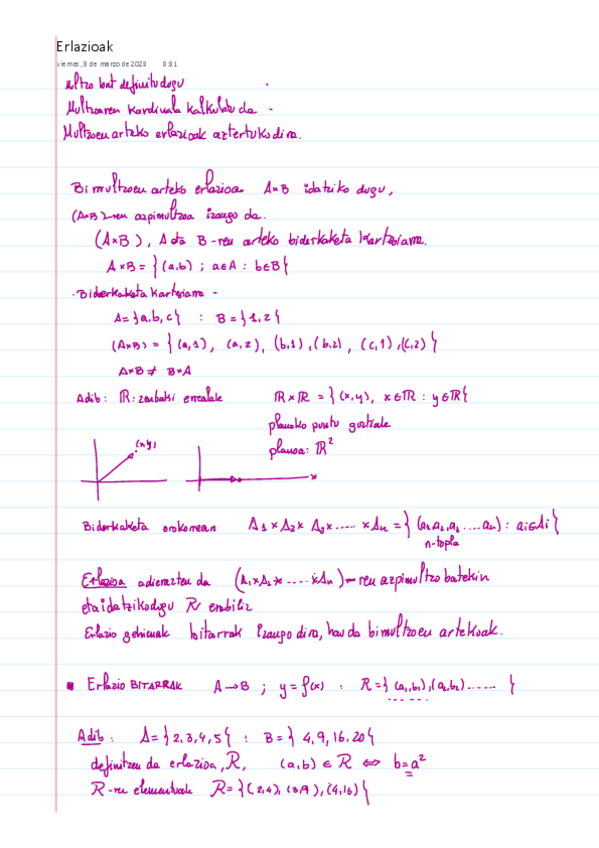 Erlazioak
viernes, 8 de marzo de 2023 8:31
Multzo bat definitu dugu
Multzoaren kardinala kalkulatu da.
Multzoen arteko erlazioak aztertuko dira.
Bi multzoen arteko erlazioa A×B idatziko dugu,
(A×B)-ren azpimultzoa izango da.
(A×B), A eta B-ren arteko biderkaketa kartesiarra.
A×B = {(a,b) ; a∈A : b∈B}
· Biderkaketa kartesiarra -
A={a,b,c} : B={1,2}
(A×B) = {(a,1), (a,2), (b,1), (b,2), (c,1), (c,2)}
A×B ≠ B×A
Adib: ℝ: zenbaki errealak ℝ×ℝ = {(x,y), x∈ℝ : y∈ℝ}
planoko puntu guztiak
planoa: ℝ²
(x,y)
x
Biderkaketa orokorrean A₁×A₂×A₃×.....×Aₙ = {(a₁,a₂,a₃....aₙ) : aᵢ∈Aᵢ}
n-topla
Erlazioa adierazten da (A₁×A₂×....×Aₙ)-ren azpimultzo batekin
eta idatziko dugu R erabiliz
Erlazio gehienak bitarrak izango dira, hau da bi multzoen artekoak.
▪ Erlazio BITARRAK A→B ; y=f(x) : R={(a₁,b₁),(a₂,b₂)...... }
Adib: A={2,3,4,5} : B={4,9,16,20}
definitzen da erlazioa, R, (a,b)∈R ⇔ b=a²
R-ren elementuak R={(2,4),(3,9),(4,16)}